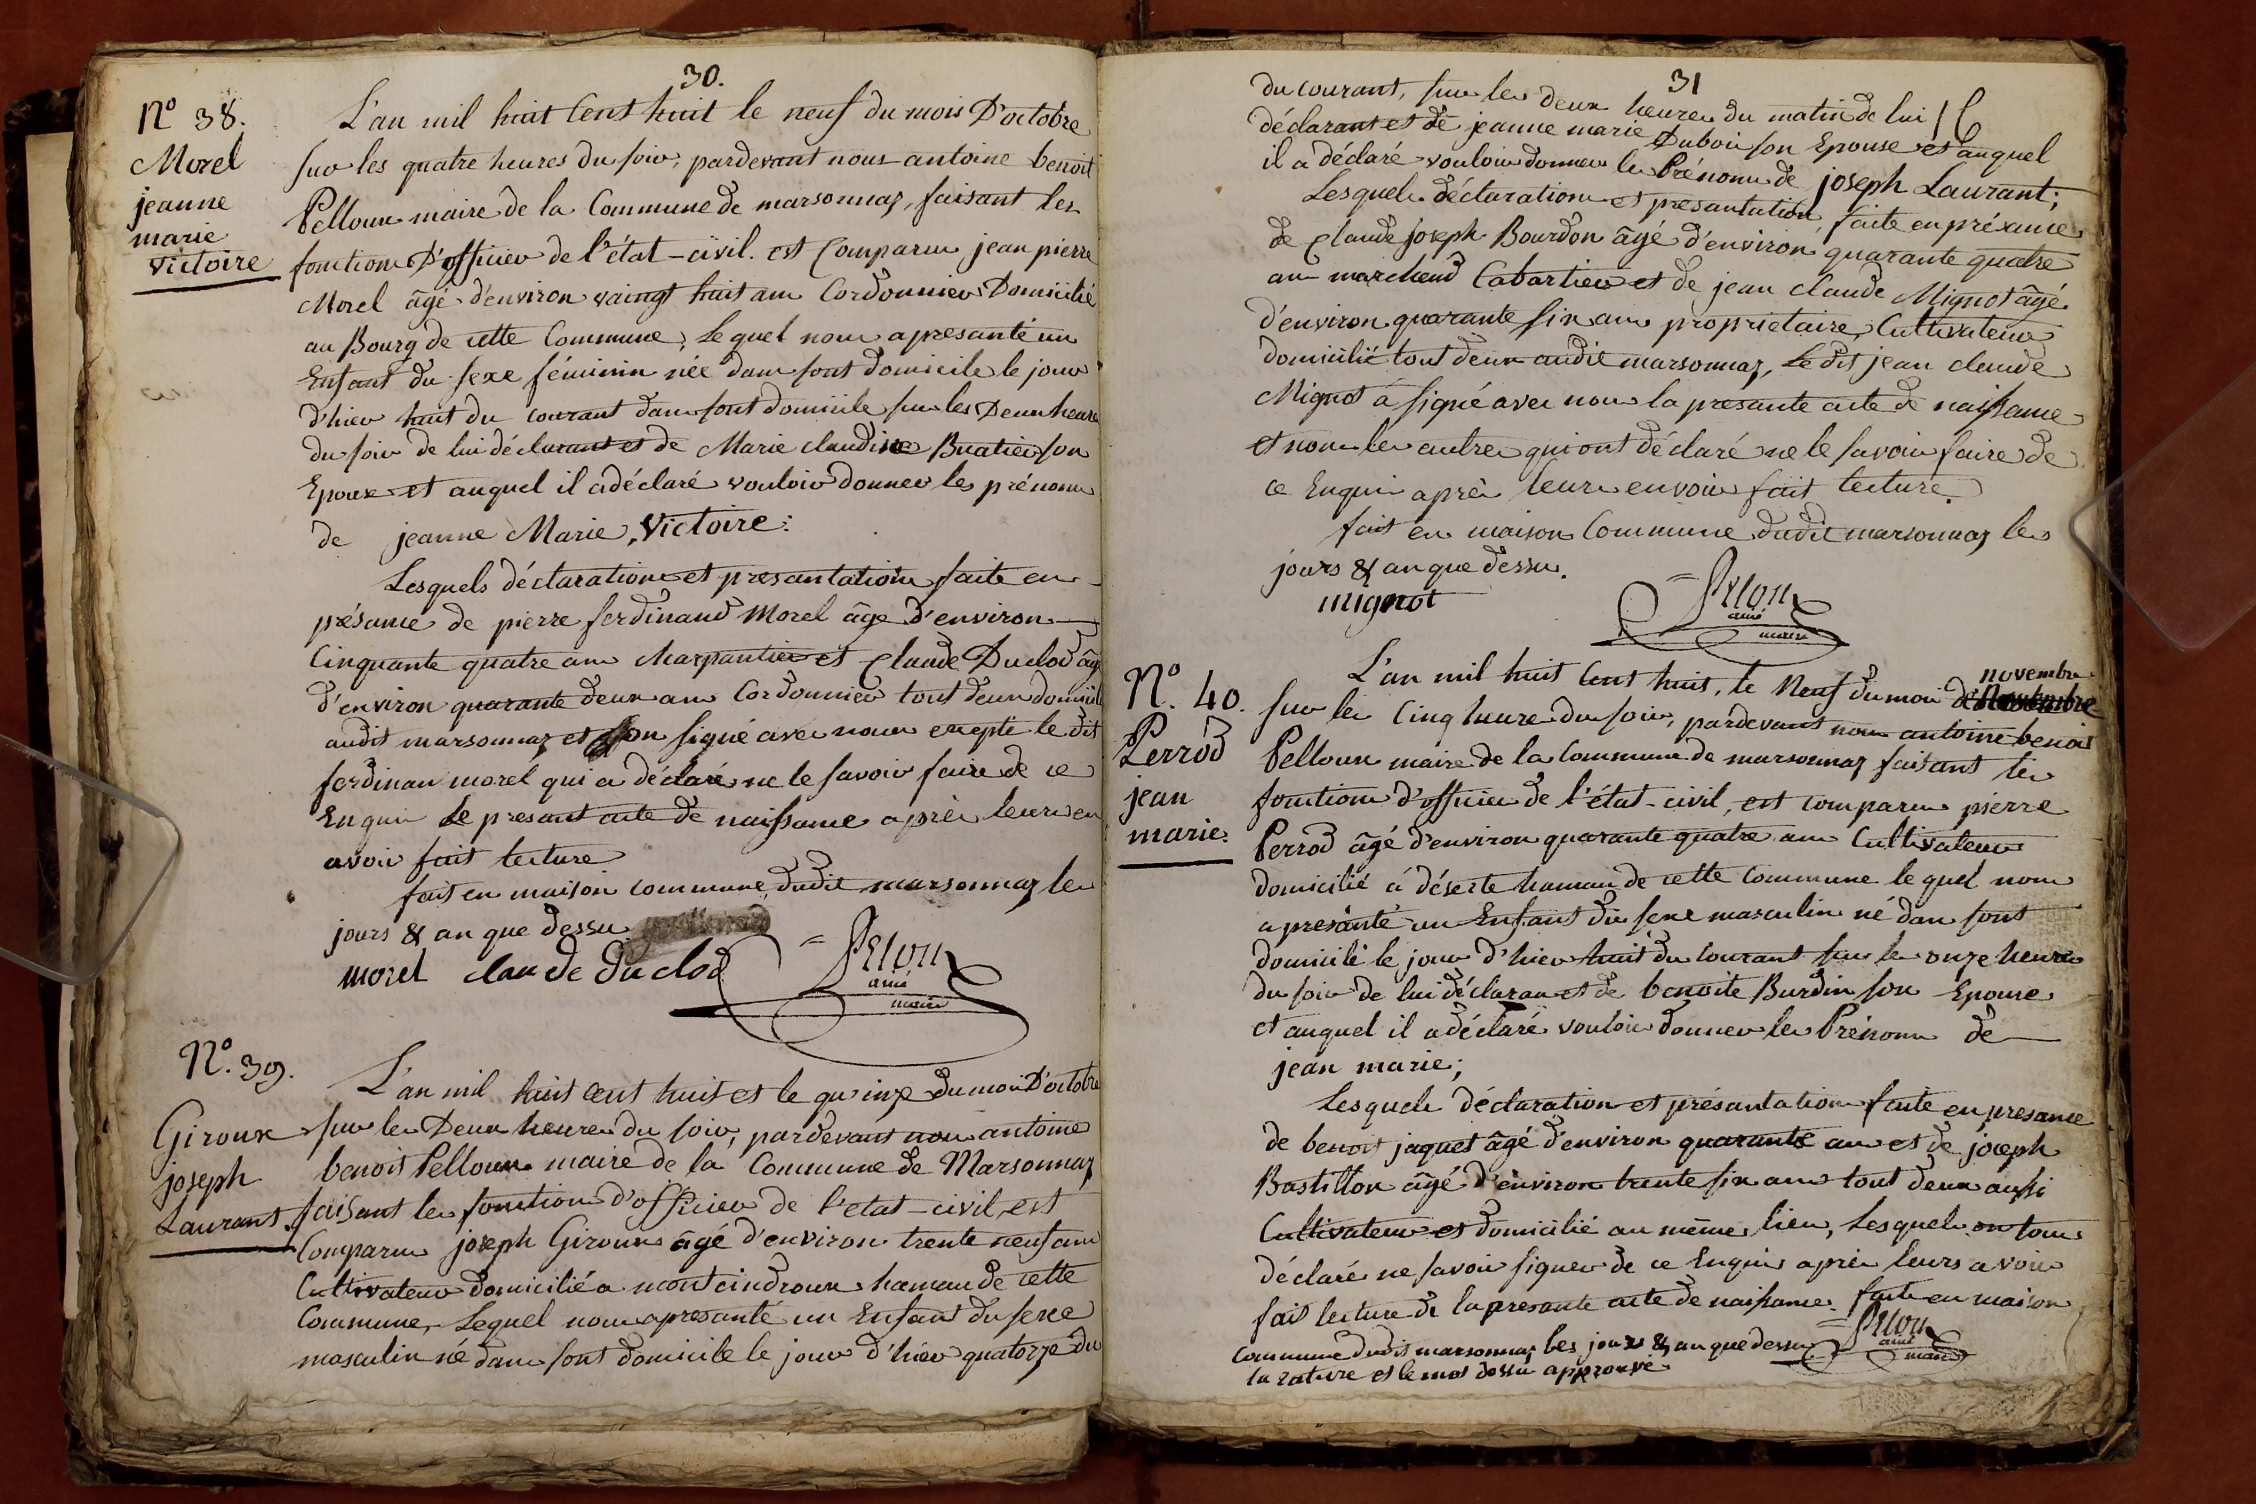 30.
N° 38.
Morel
jeanne
marie
victoire
L'an mil huit Cent huit le neuf du mois D'octobre
sur les quatre heures du soir, pardevant nous antoine benoit
Pelloux maire de la Commune de marsonnaz, faisant les
fonctions D'officier de l'état-civil. est Comparu jean pierre
Morel âgé d'environ vaingt huit ans Cordonnier Domicilié
au Bourg de cette Commune, Lequel nous a presanté un
Enfant du sexe féminin née dans sont domicile le jour
d'hier huit du courant dans sont domicile sur les Deux heures
du soir de lui déclarant et de Marie claudine Buatier son
Epouse et auquel il a déclaré vouloir donner les prénoms
de jeanne Marie, Victoire:
Lesquels déclarations et presantation faite en
présance de pierre ferdinand Morel âge d'environ
Cinquante quatre ans charpantier et Claude Duclod âgé
d'environ quarante deux ans Cordonnier tout deux domicilié
audit marsonnaz et on signé avec nous excepté le dit
ferdinan morel qui a déclaré ne le savoir faire de ce
Enquis le presant acte de naissance après leurs en
avoir fait lecture
fait en maison commune dudit marsonnaz les
jours & an que dessu.
morel claude duclod Pelou
ainé
maire
N°. 39.
Giroux
joseph
Laurant.
L'an mil huit cent huit et le quinze du mois D'octobre
sur les Deux heures du soir, pardevant nous antoine
benoit Pelloux maire de la Commune de Marsonnaz
faisant les fonctions d'officier de l'etat-civil, est
Comparu joseph Giroux âgé d'environ trente neuf ans
Cultivateur domicilié a montcindroux hamau de cette
Commune, Lequel nous a presanté un Enfant du sexe
masculin né dans sont domicile le jour d'hier quatorze du
31
du courant, sur les deux heures du matin de lui
déclarant et de jeanne marie Dubois son Epouse et auquel
il a déclaré vouloir donner les Prénoms de joseph Laurant;
Lesquels déclarations et presantation faite en présance
de Claude joseph Bourdon âgé d'environ quarante quatre
ans marchand Cabartier et de jean claude Mignot âgé
d'environ quarante six ans proprietaire, Cultivateur
domicilié tout deux audit marsonnaz, Le dit jean claude
Mignot à signé avec nous la presante acte de naissance
et nom les autres qui ont déclaré ne le savoir faire de
ce Enquis après leurs en voir fait lecture.
fait en maison Commune dudit marsonnaz les
jours & an que dessu.
mignot Pelou
ainé
maire
N°. 40.
Perrod
jean
marie.
L'an mil huit Cent huit, le Neuf du mois de novembre
sur les Cinq heures du soir, pardevant nous antoine benoit
Pelloux maire de la Commune de marsonnaz faisant les
fonctions d'officier de l'état-civil, est comparu pierre
Perrod âgé d'environ quarante quatre ans Cultivateur
domicilié à déserte hamau de cette Commune lequel nous
a presanté un Enfant du sexe masculin né dans sont
domicilé le jour d'hier huit du courant sur les onze heures
du soir de lui déclaran et de benoite Burdin son Epouse
et auquel il a déclaré vouloir donner les Prénoms de
jean marie;
Lesquels déclaration et présantation faite en presance
de benoit jaquet âgé d'environ quarante ans et de joseph
Bastillon âgé d'environ trente six ans tout deux aussi
Cultivateur et domicilié au même lieu, Lesquels on tous
déclaré ne savoir signer de ce Enquis après leurs avoir
fait lecture de la presante acte de naissance. faite en maison
Commune dudit marsonnaz les jours & an que dessu Pelou
ainé
maire
la rature et le mot dessu approuvé